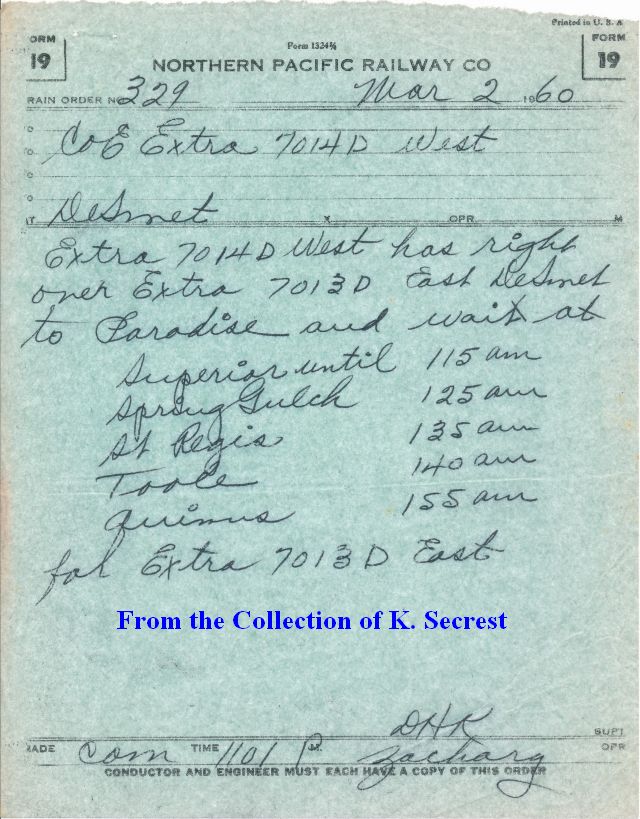 Printed in U. S. A
FORM 19
Form 1324¾
FORM 19
NORTHERN PACIFIC RAILWAY CO
RAIN ORDER NO 329 Mar 2 1960
o
o C&E Extra 7014D West
o
o
T DeSmet X OPR. M
Extra 7014D West has right
over Extra 7013D East DeSmet
to Paradise and wait at
Superior until 115 am
Spring Gulch 125 am
St Regis 135 am
Toole 140 am
Quinns 155 am
for Extra 7013D East
From the Collection of K. Secrest
DHK SUPT
MADE Com TIME 1101 P M. Zachary OPR
CONDUCTOR AND ENGINEER MUST EACH HAVE A COPY OF THIS ORDER